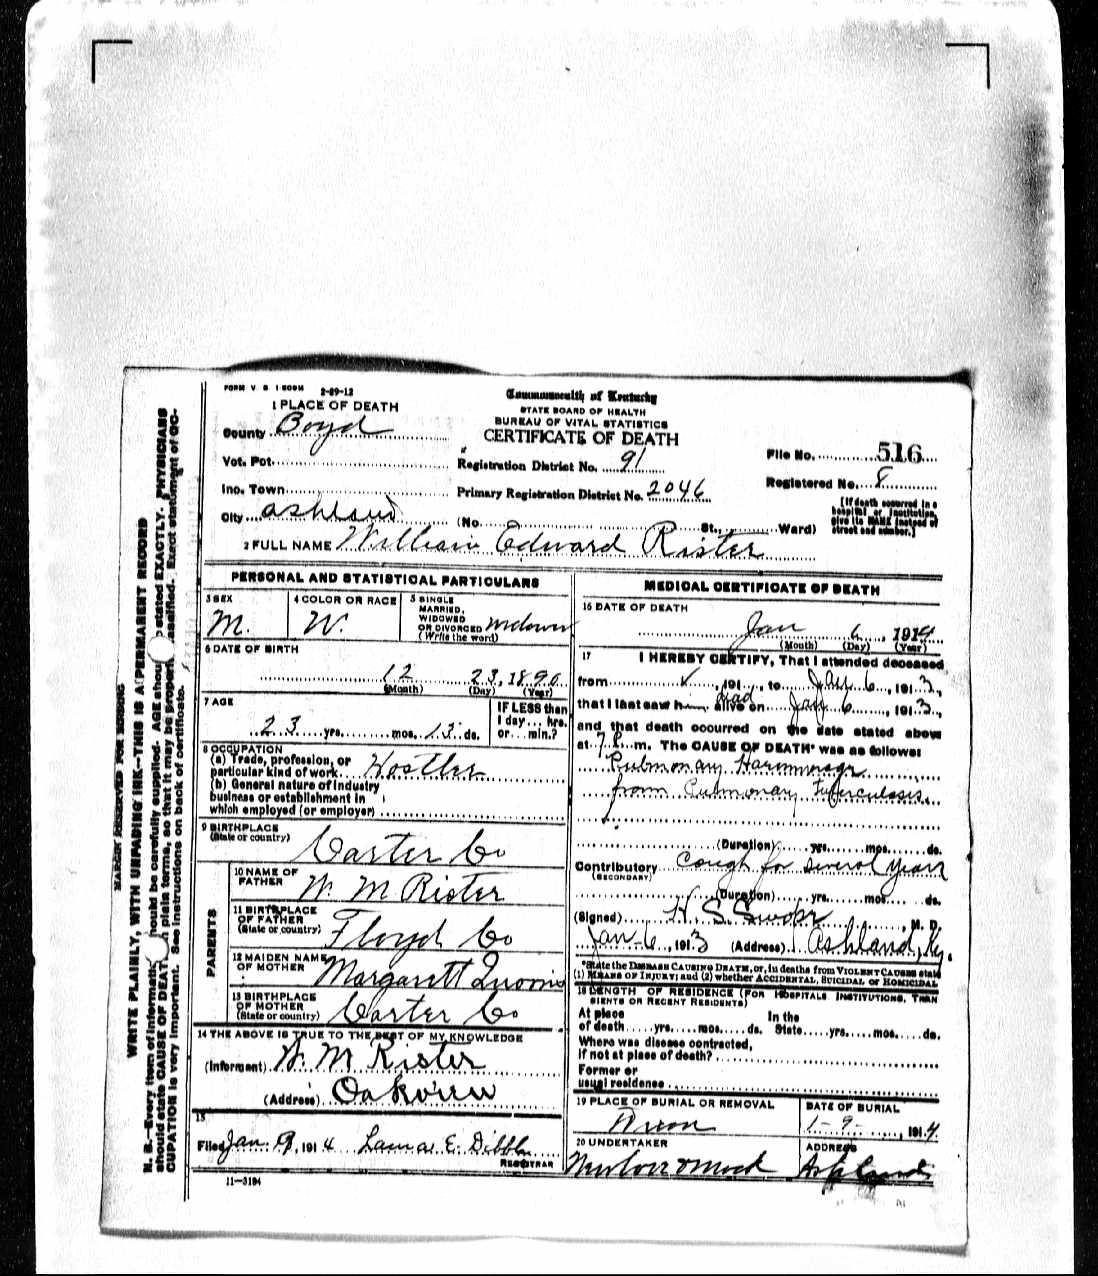 FORM V S 1 2-89-12
1 PLACE OF DEATH
Commonwealth of Kentucky
STATE BOARD OF HEALTH
BUREAU OF VITAL STATISTICS
CERTIFICATE OF DEATH
County Boyd
Vot. Pct.
Registration District No. 91
File No. 516
Inc. Town
Primary Registration District No. 2046
Registered No. 8
City Ashland (No. St., Ward)
[If death occurred in a
hospital or institution,
give its NAME instead of
street and number.]
2 FULL NAME William Edward Rister
PERSONAL AND STATISTICAL PARTICULARS
3 SEX
M.
4 COLOR OR RACE
W.
5 SINGLE
MARRIED,
WIDOWED
OR DIVORCED
(Write the word)
6 DATE OF BIRTH
12 23, 1890
(Month) (Day) (Year)
7 AGE
23 yrs. mos. 13 ds.
IF LESS than
1 day... hrs.
or... min.?
8 OCCUPATION
(a) Trade, profession, or
particular kind of work Hostler
(b) General nature of industry
business or establishment in
which employed (or employer)
9 BIRTHPLACE
(State or country)
Carter Co
PARENTS
10 NAME OF
FATHER
W. M Rister
11 BIRTHPLACE
OF FATHER
(State or country)
Floyd Co
12 MAIDEN NAME
OF MOTHER
Margarett
13 BIRTHPLACE
OF MOTHER
(State or country)
Carter Co
14 THE ABOVE IS TRUE TO THE BEST OF MY KNOWLEDGE
(Informant) W. M Rister
(Address) Oakview
15
Filed Jan. 9, 1914 Laura E. Dibble
REGISTRAR
11-3184
MEDICAL CERTIFICATE OF DEATH
16 DATE OF DEATH
Jan 6, 1914
(Month) (Day) (Year)
17 I HEREBY CERTIFY, That I attended deceased
from ✓, 191..., to Jan 6, 1913,
that I last saw him dead alive on Jan 6, 1913,
and that death occurred on the date stated above
at 7 P. m. The CAUSE OF DEATH* was as follows:
Pulmonary
from Pulmonary Tuberculosis.
(Duration) yrs. mos. ds.
Contributory Cough for several years
(SECONDARY)
(Duration) yrs. mos. ds.
(Signed) H. S. Swope, M. D.
Jan-6, 1913 (Address) Ashland, Ky.
*State the DISEASE CAUSING DEATH, or, in deaths from VIOLENT CAUSES state
(1) MEANS OF INJURY; and (2) whether ACCIDENTAL, SUICIDAL or HOMICIDAL
18 LENGTH OF RESIDENCE (FOR HOSPITALS, INSTITUTIONS, TRANSIENTS
OR RECENT RESIDENTS)
At place
of death yrs. mos. ds.
In the
State yrs. mos. ds.
Where was disease contracted,
if not at place of death?
Former or
usual residence
19 PLACE OF BURIAL OR REMOVAL
DATE OF BURIAL
1-9-, 1914
20 UNDERTAKER
ADDRESS
Ashland
MARGIN RESERVED FOR BINDING
WRITE PLAINLY, WITH UNFADING INK—THIS IS A PERMANENT RECORD
N. B.—Every item of information should be carefully supplied. AGE should be stated EXACTLY. PHYSICIANS
should state CAUSE OF DEATH in plain terms, so that it may be properly classified. Exact statement of OC-
CUPATION is very important. See instructions on back of certificate.